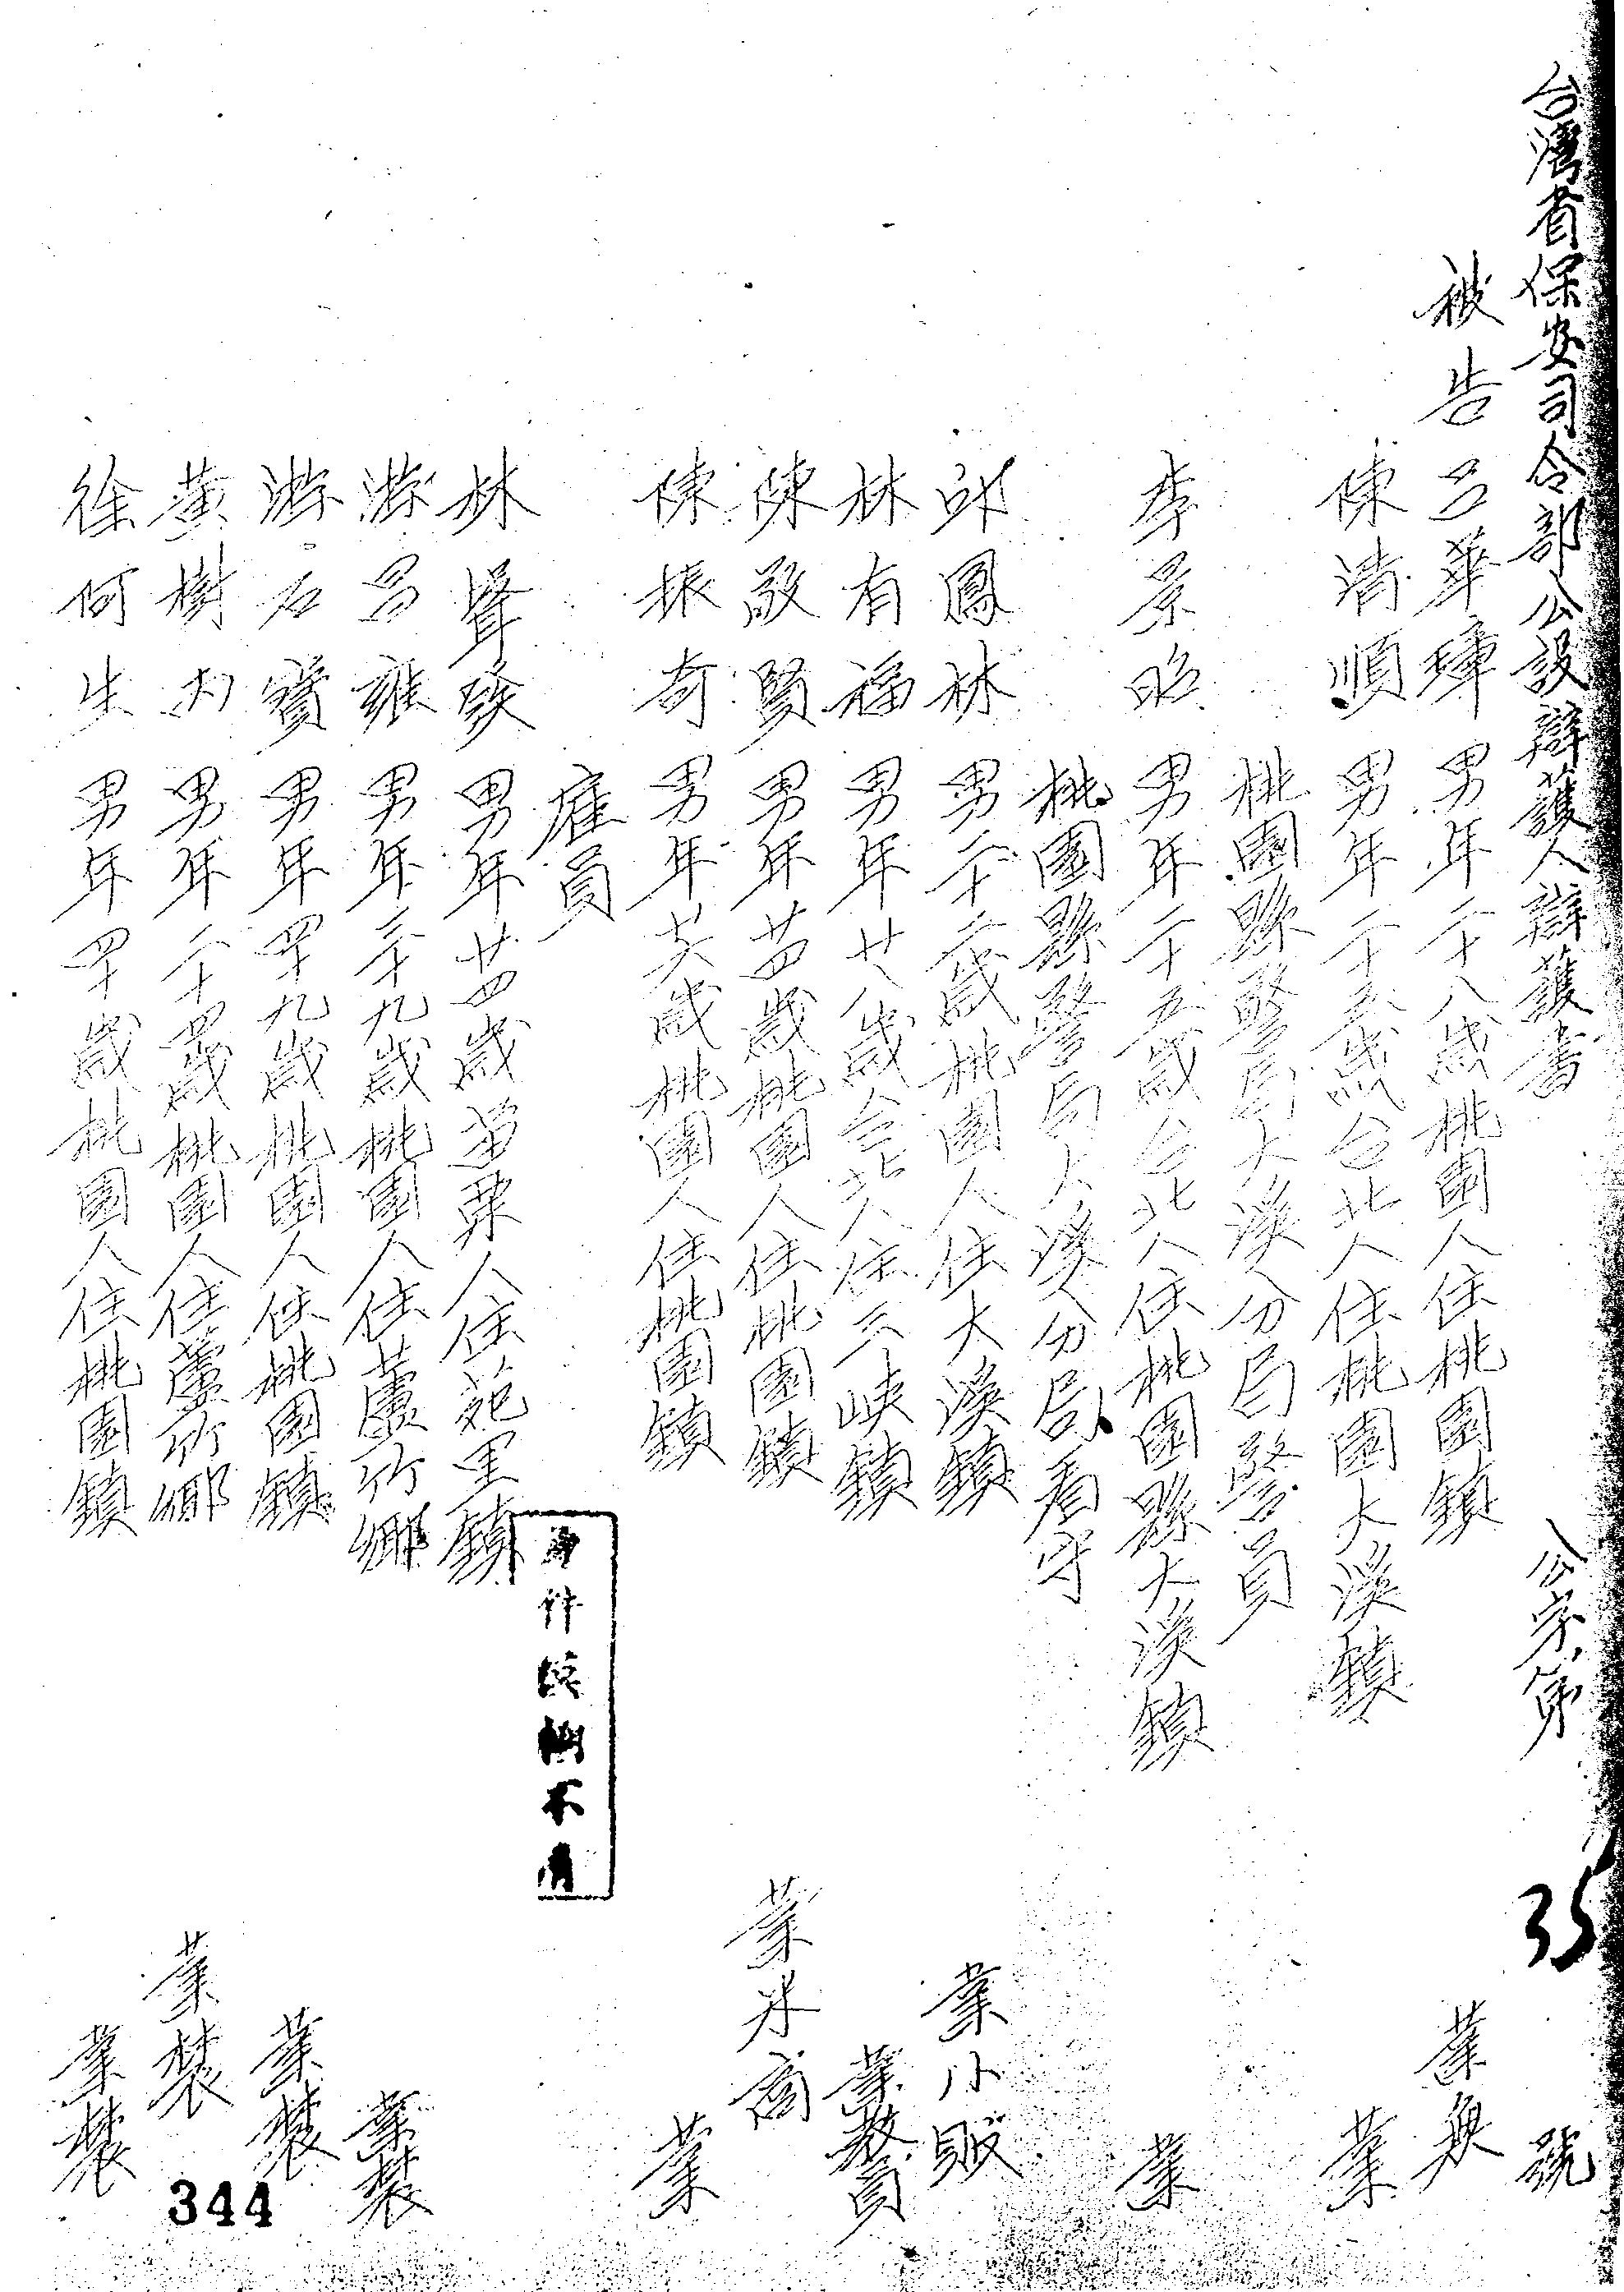 台灣省保安司令部公設辯護人辯護書 公字第 號
35
被告 呂華璋 男年二十八歲桃園人住桃園鎮 業無
陳清順 男年二十五歲台北人住桃園大溪鎮 業
桃園縣警局大溪分局警員
李景昭 男年二十五歲台北人住桃園縣大溪鎮 業
桃園縣警局大溪分局看守
邱鳳林 男二十二歲桃園人住大溪鎮 業小販
林有福 男年廿八歲台北人住三峽鎮 業教員
陳敬賢 男年廿四歲桃園人住桃園鎮 業米商
陳振奇 男年廿六歲桃園人住桃園鎮 業
雇員
林聲發 男年廿四歲苗栗人住苑里鎮
游呂雍 男年三十九歲桃園人住蘆竹鄉 業農
游石寶 男年四十九歲桃園人住桃園鎮 業農
黃樹 男年二十四歲桃園人住蘆竹鄉 業農
徐何生 男年四十歲桃園人住桃園鎮 業農
原件模糊不清
344